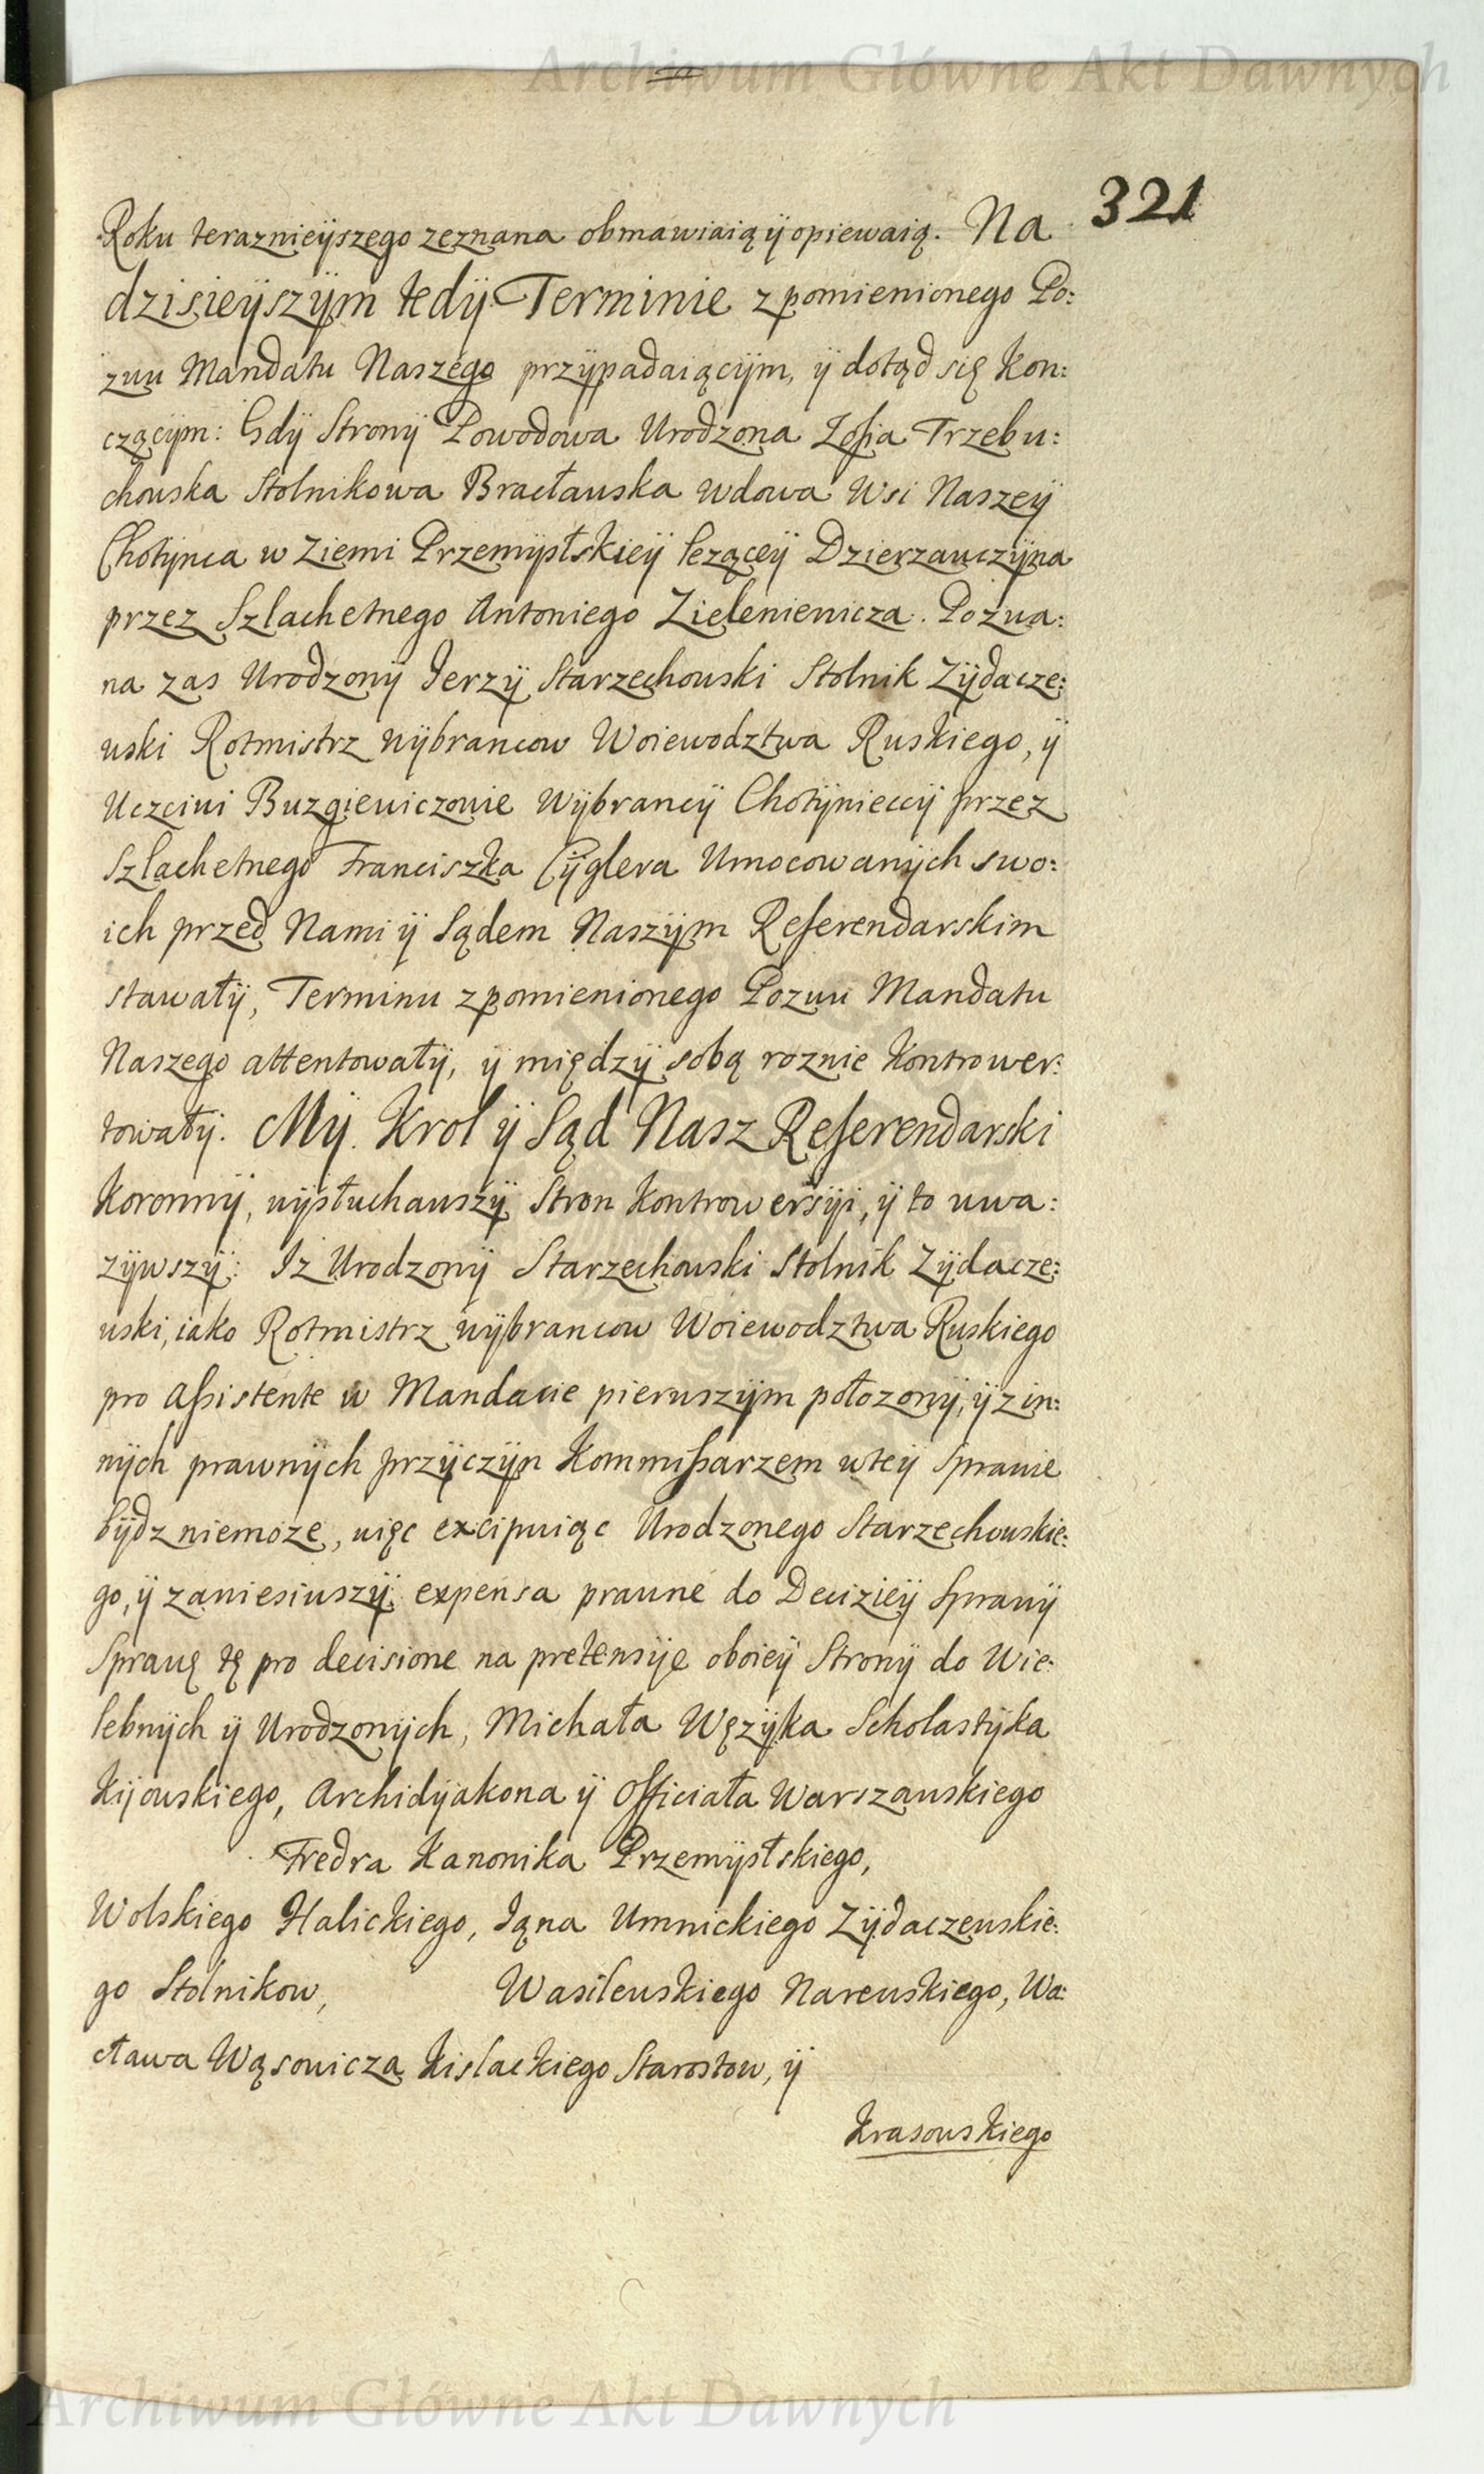 Archiwum Główne Akt Dawnych
321
Roku teraznieÿszego zeznana obmawiaią ÿ opiewaią. Na
dzisieÿszÿm tedÿ Terminie zpomienionego Po:
zwu Mandatu Naszego przÿpadaiącÿm, ÿ dotąd się kon:
czącÿm: Gdÿ Stronÿ Powodowa Urodzona Zofia Trzebu:
chowska Stolnikowa Bracławska wdowa Wsi Naszeÿ
Chotÿnca w Ziemi Przemÿslskieÿ leząceÿ Dzierzawczÿna
przez Szlachetnego Antoniego Zieleniewicza. Pozwa:
na zas Urodzonÿ Jerzÿ Starzechowski Stolnik Zÿdacze:
wski Rotmistrz wÿbrancow Woiewodztwa Ruskiego, ÿ
Uczciwi Buzgiewiczowie Wÿbrancÿ Chotÿnieccÿ przez
Szlachetnego Franciszka Cÿglera Umocowanÿch swo:
ich przed Nami ÿ Sądem Naszÿm Referendarskim
stawałÿ, Terminu zpomienionego Pozwu Mandatu
Naszego attentowałÿ, ÿ międzÿ sobą roznie kontrower:
towałÿ. Mÿ Krol ÿ Sąd Nasz Referendarski
Koronnÿ, wÿsłuchawszÿ Stron kontrowersÿi, ÿ to uwa:
zÿwszÿ: Iz Urodzonÿ Starzechowski Stolnik Zÿdacze:
wski, iako Rotmistrz wÿbrancow Woiewodztwa Ruskiego
pro assistente w Mandacie pierwszÿm połozonÿ, ÿ z in:
nÿch prawnÿch przÿczÿn Kommissarzem wteÿ Sprawie
bÿdz niemoze, więc excipuiąc Urodzonego Starzechowskie:
go, ÿ zaniesiuszÿ expensa prawne do Deciziеÿ Sprawÿ
Sprawę tę pro decisione na pretensÿę oboieÿ Stronÿ do Wie:
lebnÿch ÿ Urodzonÿch, Michała Węzÿka Scholastÿka
Kijowskiego, Archidÿakona ÿ Officiała Warszawskiego
Fredra Kanonika Przemÿslskiego,
Wolskiego Halickiego, Jąna Umnickiego Zÿdaczewskie:
go Stolnikow, Wasilewskiego Narewskiego, Wa:
cława Wąsowicza Kislackiego Starostow, ÿ
Krasowskiego
Archiwum Główne Akt Dawnych